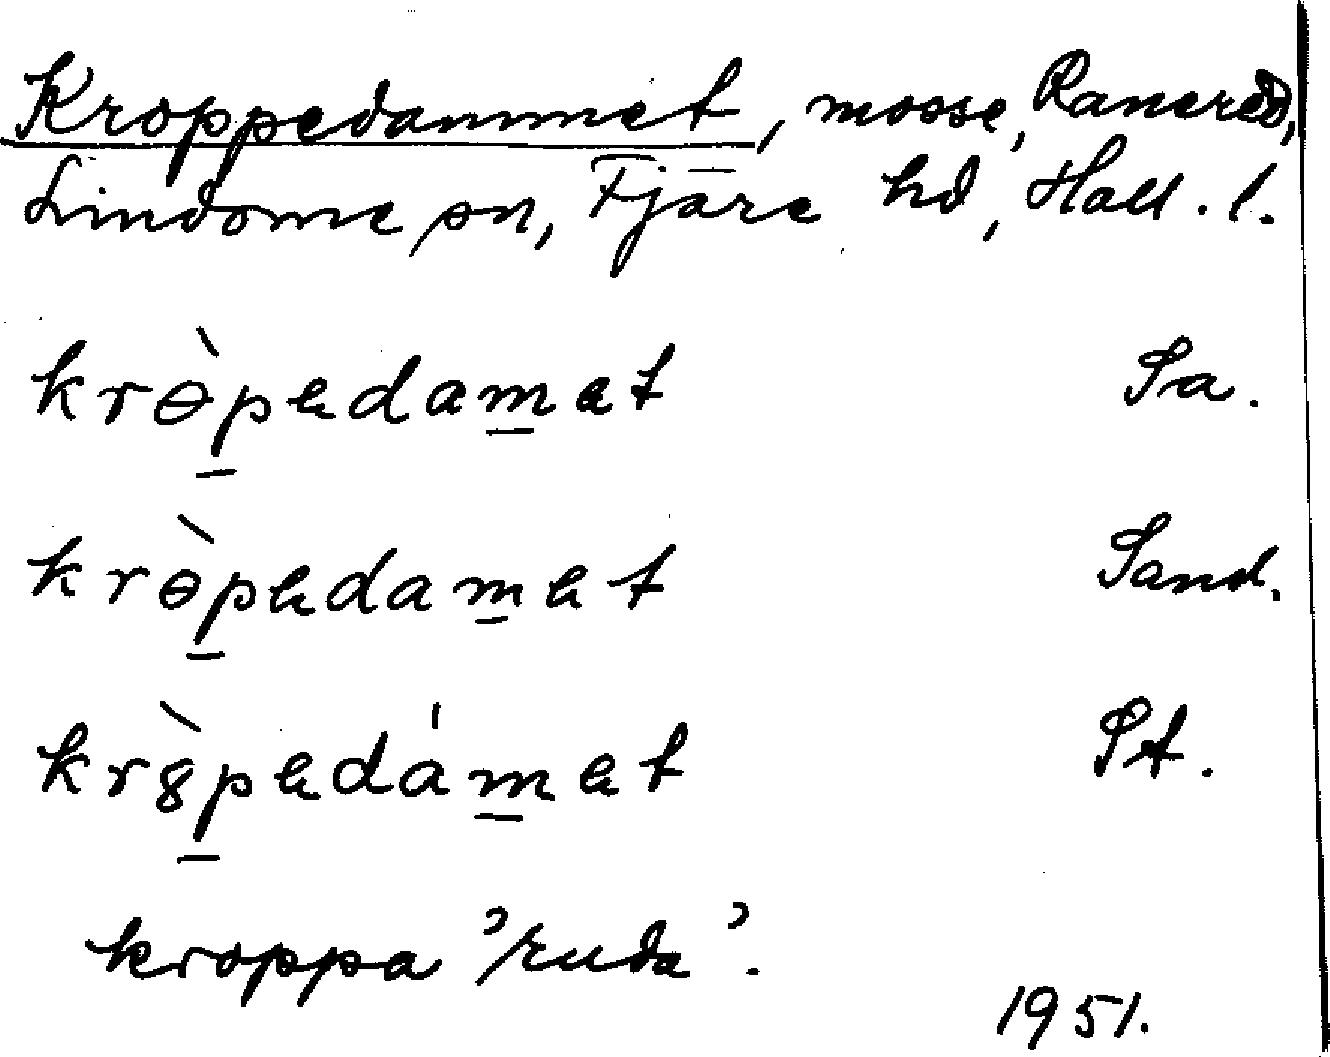 Kroppedammet, mosse, Ranered,
Lindome sn, Fjäre hd, Hall. l.
krɵ̀p̱edam̱et Sa.
krɵ̀p̱edam̱et Sand.
kr8̀p̱edám̱et St.
kroppa 'ruda'.
1951.